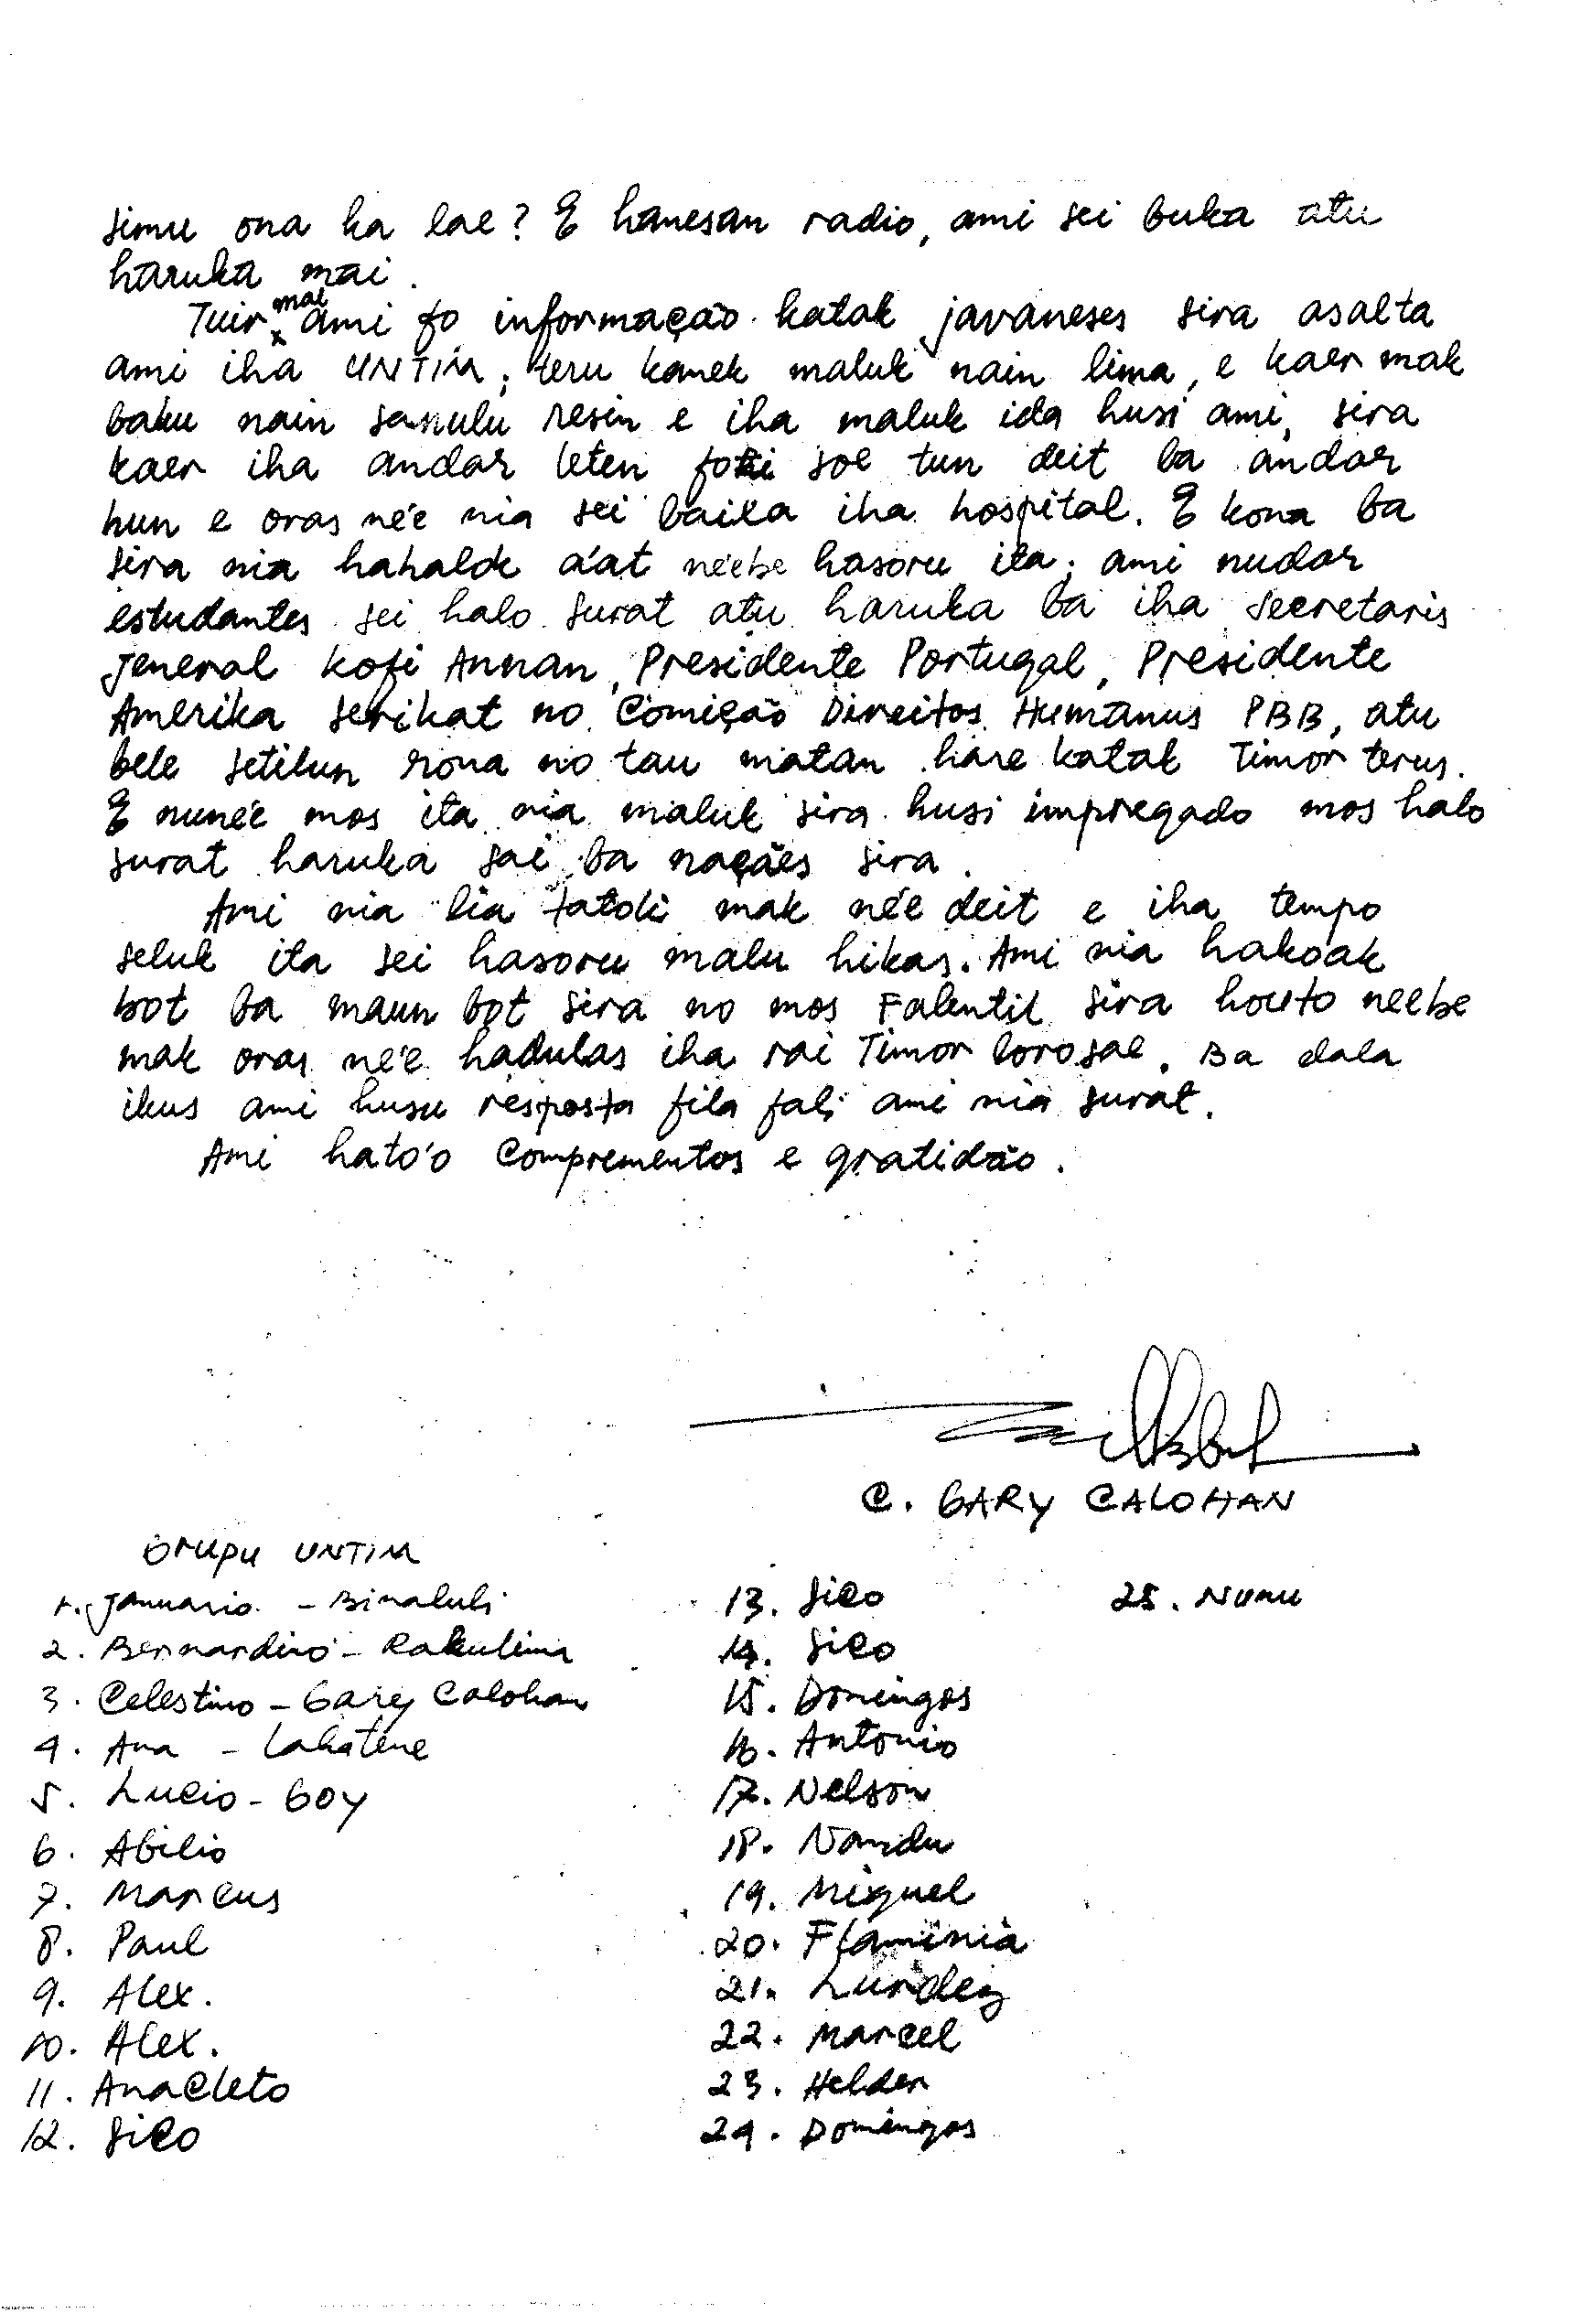 simu ona ka lae? E hanesan radio, ami sei buka atu
haruka mai.
Tuir mai ami fo informação katak javaneses sira asalta
ami iha UNTIM, teru kanek maluk nain lima, e kaer mak
baku nain sanulu resin e iha maluk ida husi ami, sira
kaer iha andar leten foti soe tun deit ba andar
hun e oras né'e nia sei baixa iha hospital. E kona ba
sira nia hahalok a'at né'ebe hasoru ita, ami nudar
estudantes sei halo surat atu haruka ba iha Secretaris
Jeneral Kofi Annan, Presidente Portugal, Presidente
Amerika Serikat no Comição Direitos Humanus PBB, atu
bele setilun rona no tau matan hare katak Timor terus.
E nuné'e mos ita nia maluk sira husi impregado mos halo
surat haruka sai ba naçães sira.
Ami nia lia tatoli mak né'e deit e iha tempo
seluk ita sei hasoru malu hikas. Ami nia hakoak
bot ba maun bot sira no mos Falentil sira houto neebe
mak oras né'e hadulas iha rai Timor lorosae. Ba dala
ikus ami husu resposta fila fali ami nia surat.
Ami hato'o Comprementos e gratidão.
C. GARY CALOHAN
Grupu UNTIM
1. Januario - Binaluli
2. Bernardino - Rakulima
3. Celestino - Gary Calohan
4. Ana - Lakatene
5. Lucio - Goy
6. Abilio
7. Marcus
8. Paul
9. Alex.
10. Alex.
11. Anacleto
12. Sico
13. Sico
14. Sico
15. Domingos
16. Antonio
17. Nelson
18. Nandu
19. Miguel
20. Flaminia
21. Lurdez
22. Marcel
23. Helder
24. Domingos
25. Nunu